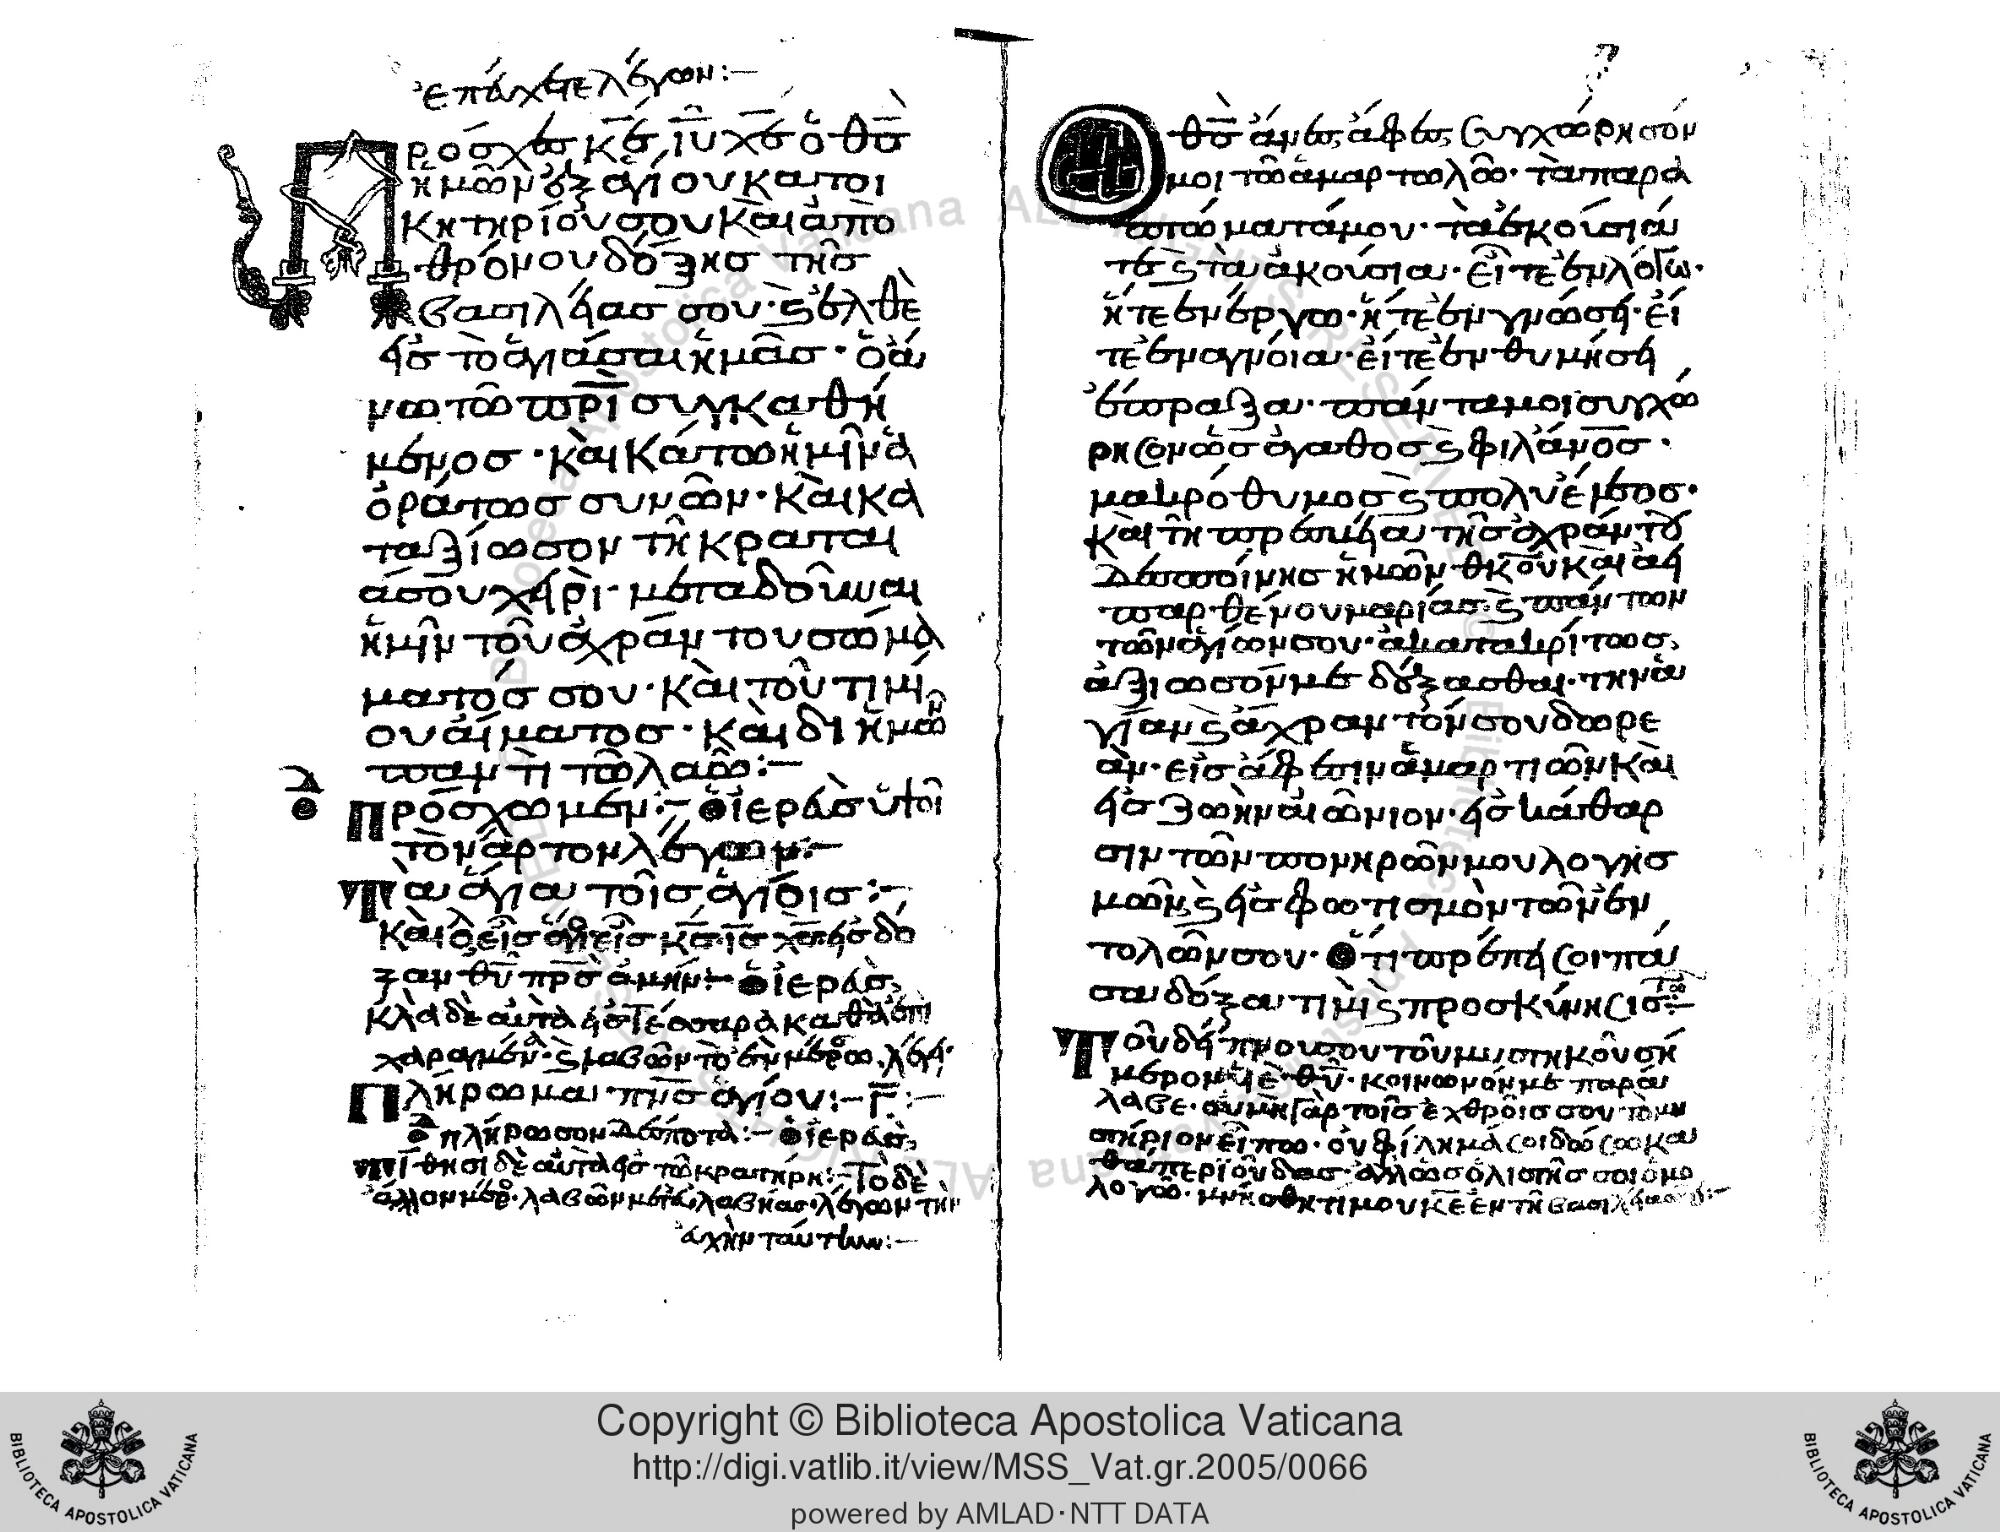 ἐπεύχεται λέγων:—
Πρόσχες κε ιυ χε ὁ θς
ἡμῶν ἐξ ἁγίου κατοι
κητηρίου σου καὶ ἀπὸ
θρόνου δόξης τῆς
βασιλείας σου· ϗ ἐλθὲ
εἰς τὸ ἁγιάσαι ἡμᾶς· ὁ ἄ
νω τῶ πρι συγκαθή
μενος· καὶ κάτω ἡμῖν ἀ
οράτως συνών· καὶ κα
ταξίωσον τῆ κραται
ᾶ σου χειρὶ· μεταδοῦναι
ἡμῖν τοῦ ἀχράντου σώμα
τός σου· καὶ τοῦ τιμί
ου αἵματος· καὶ δι ἡμῶν
παντὶ τῶ λαῶ:—
Πρόσχωμεν:— ὁ ἱερεὺς ὑψοῖ
τὸν ἄρτον λέγων:—
Τὰ ἅγια τοῖς ἁγίοις:—
Καὶ ὁ λαός εἷς ἅγιος εἷς κς ις χς εἰς δό
ξαν θυ πρς ἀμήν:— ὁ ἱερεὺς
κλᾶ δὲ αὐτὰ εἰς τέσσαρα καθὰ εἰσὶ
χαραγμένα· ϗ λαβὼν τὸ ἓν μέρος λέγει·
Πλήρωμα πνς ἁγίου:—
ὁ δ πλήρωσον δέσποτα:— ὁ ἱερεὺς
τίθησι δὲ αὐτὰ εἰς τὸ κρατήρη:— τὸ δὲ
ἄλλον μέρος· λαβὼν μετ εὐλαβείας· λέγων τὴν
εὐχὴν ταύτην:—
Ὁ θς ἄνες ἄφες συγχώρησόν
μοι τῶ ἁμαρτωλῶ· τὰ παρα
πτώματά μου· τὰ ἑκούσια
τε ϗ τὰ ἀκούσια· εἴτε ἐν λόγω·
ἤτε ἐν ἔργω· ἤτε ἐν γνώσει· εἴ
τε ἐν ἀγνοία· εἴτε ἐν θυμήσει
ἔπραξα· πάντα μοι συγχώ
ρησον ὡς ἀγαθὸς ϗ φιλάνος·
μακρόθυμος ϗ πολυέλεος·
καὶ τῆ πρεσβεία τῆς ἀχράντου
δεσποίνης ἡμῶν θκου καὶ ἀεὶ
παρθένου μαρίας· ϗ πάντων
τῶν ἁγίων σου· ἀκατακρίτως
ἀξίωσόν με δέξασθαι· τὴν ἁ
γίαν ϗ ἄχραντόν σου δωρε
ὰν· εἰς ἄφεσιν ἁμαρτιῶν καὶ
εἰς ζωὴν αἰώνιον· εἰς κάθαρ
σιν τῶν πονηρῶν μου λογισ
μῶν· ϗ εἰς φωτισμὸν τῶν ἐν
τολῶν σου· ὅτι πρέπει σοι πᾶ
σα δόξα τιμὴ ϗ προσκύνησις τῶ:—
Τοῦ δείπνου σου τοῦ μυστικοῦ σή
μερον υἱὲ θυ· κοινωνόν με παρά
λαβε· οὐ μὴ γὰρ τοῖς ἐχθροῖς σου τὸ μυ
στήριον εἴπω· οὐ φίλημά σοι δώσω κα
θάπερ ἰούδας ἀλλ ὡς ὁ ληστής σοι ὁμο
λογῶ· μνήσθητί μου κε ἐν τῆ βασιλεία σου:—
Copyright © Biblioteca Apostolica Vaticana
http://digi.vatlib.it/view/MSS_Vat.gr.2005/0066
powered by AMLAD·NTT DATA
BIBLIOTECA APOSTOLICA VATICANA
BIBLIOTECA APOSTOLICA VATICANA